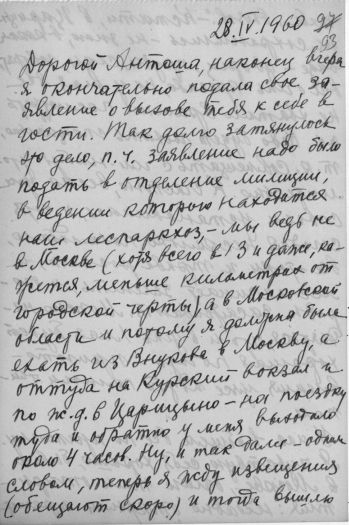 28.IV.1960
93
Дорогой Антоша, наконец вчера
я окончательно подала свое за-
явление о вызове тебя к себе в
гости. Так долго затянулось
это дело, п.ч. заявление надо было
подать в отделение милиции,
в ведении которого находится
наш леспаркхоз, – мы ведь не
в Москве (хотя всего в 13 и даже, ка-
жется, меньше километрах от
городской черты), а в Московской
области и потому я должна была
ехать из Внукова в Москву, а
оттуда на Курский вокзал и
по ж.д. в Царицыно – на поездку
туда и обратно у меня выходило
около 4 часов. Ну, и так далее – одним
словом, теперь я жду извещения
(обещают скоро) и тогда вышлю